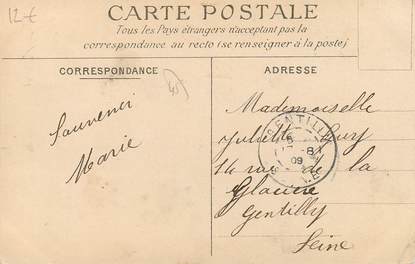 12€
CARTE POSTALE
Tous les Pays étrangers n'acceptant pas la
correspondance au recto (se renseigner à la poste)
CORRESPONDANCE
45
Souvenir
Marie
ADRESSE
Mademoiselle
Juliette
rue de la
Glacière
Gentilly
Seine
GENTILLY
8
09